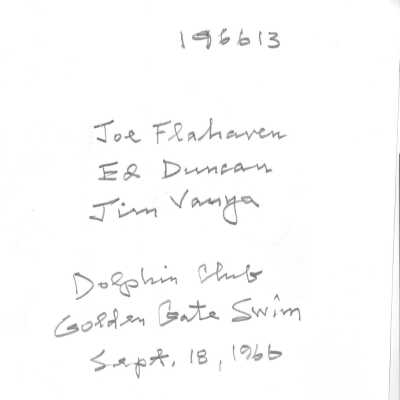 196613
Joe Flahaven
Ed Duncan
Jim Vanya
Dolphin Club
Golden Gate Swim
Sept. 18, 1966